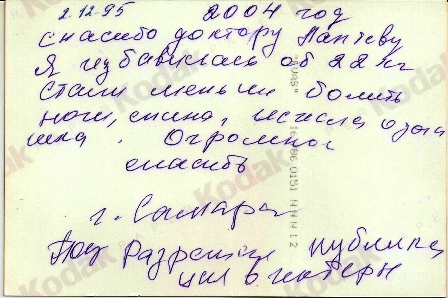 2.12.95 2004 год
спасибо доктору Лаптеву
Я избавилась об 22 кг
стали меньши болить
ноги, спина, исчезла одош
шка. Огромное
спасибо
г. Самара
Под Разрешаю публика
ции в интерн
Kodak